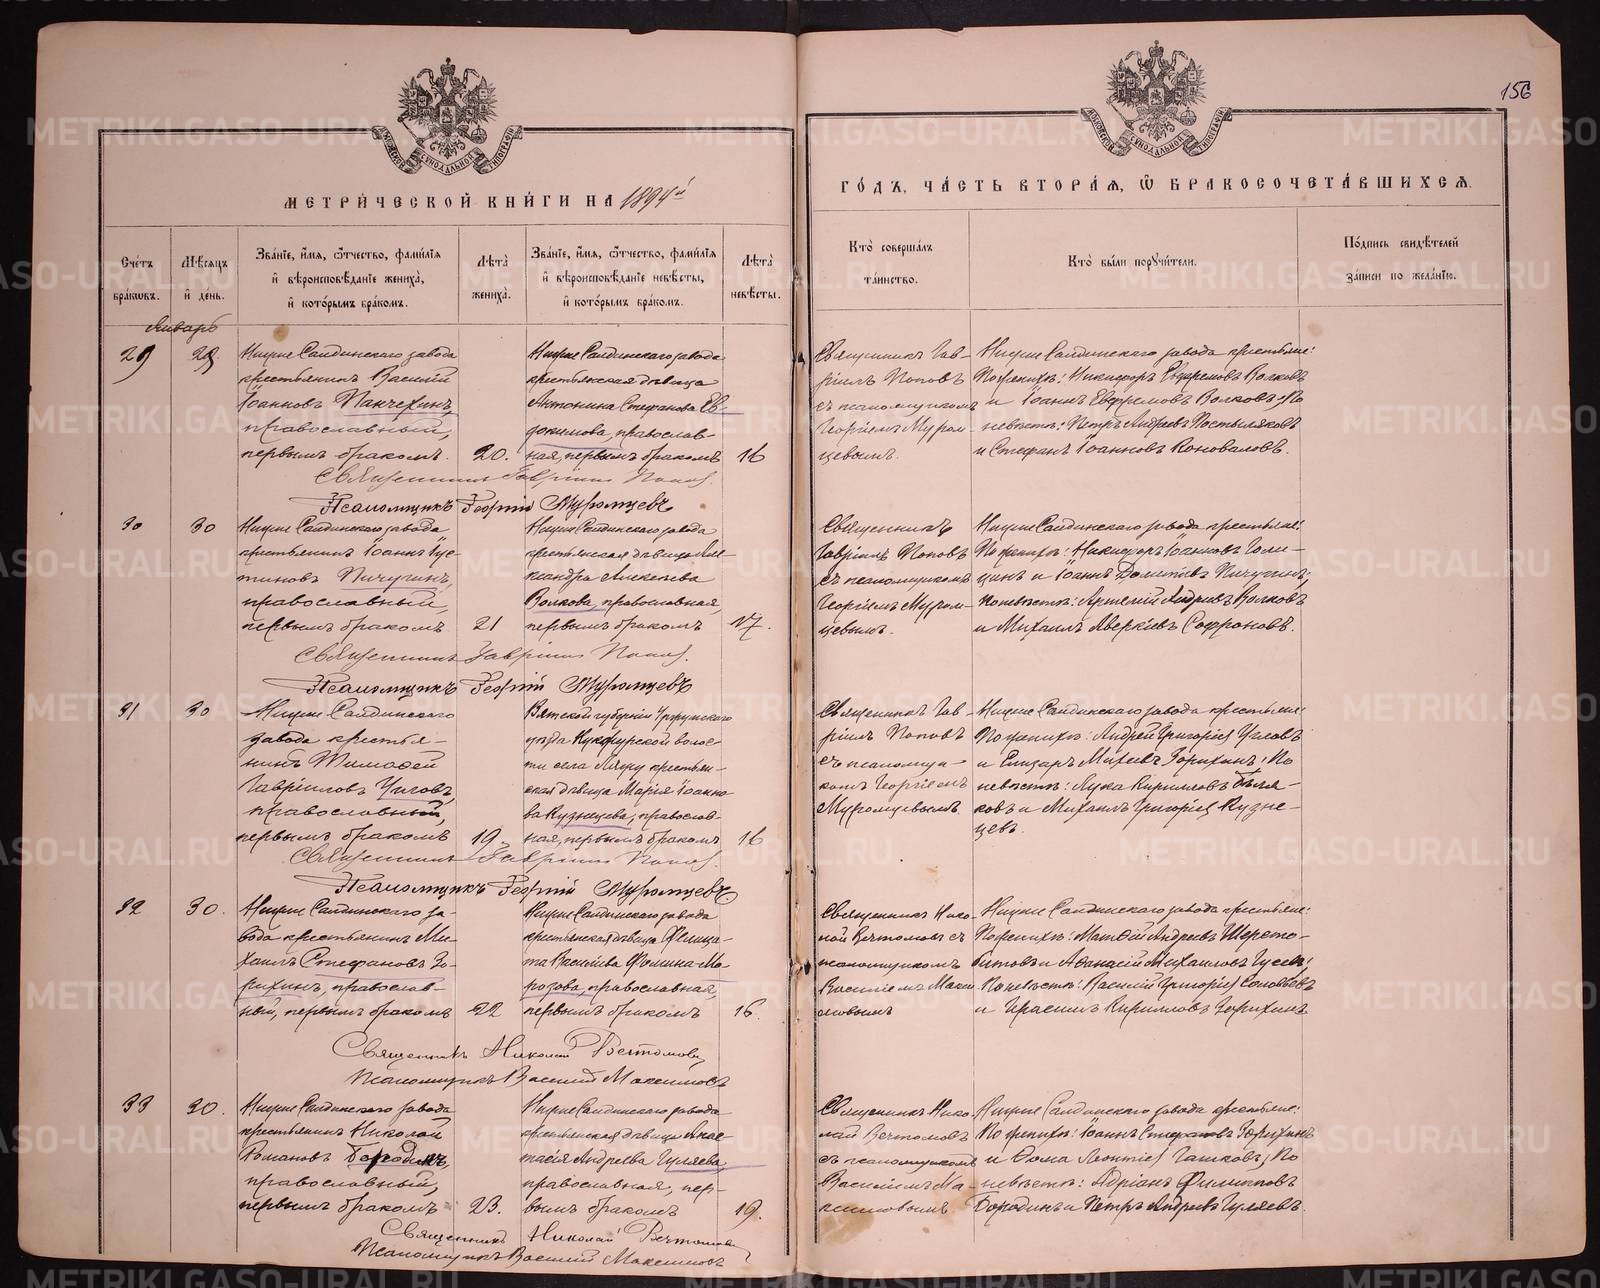 156
МЕТРИЧЕСКОЙ КНИГИ НА 1894й
ГОДЪ, ЧАСТЬ ВТОРАЯ, Ѿ БРАКОСОЧЕТАВШИХСЯ.
Счетъ браковъ.
Мѣсяцъ и день.
Званіе, имя, ѿтчество, фамилія
и вѣроисповѣданіе жениха,
и которымъ бракомъ.
Лѣта жениха.
Званіе, имя, ѿтчество, фамилія
и вѣроисповѣданіе невѣсты,
и которымъ бракомъ.
Лѣта невѣсты.
Кто совершалъ
таинство.
Кто были поручители.
Подпись свидѣтелей
записи по желанію.
Январь
29
29
Нижне Салдинскаго завода
крестьянинъ Василій
Іоанновъ Панчехинъ,
православный,
первымъ бракомъ.
20.
Нижне Салдинскаго завода
крестьянская дѣвица
Антонина Стефанова Ев-
докимова, православ-
ная, первымъ бракомъ
16
Священникъ Гав-
ріилъ Поповъ
съ псаломщикомъ
Георгіемъ Муром-
цевымъ.
Нижне Салдинскаго завода крестьяне:
По женихѣ: Никифоръ Евфремовъ Волковъ
и Іоаннъ Евфремовъ Волковъ; По
невѣстѣ: Петръ Андреевъ Постыляковъ
и Стефанъ Іоанновъ Коноваловъ.
Священникъ Гавріилъ Поповъ.
Псаломщикъ Георгій Муромцевъ
30
30
Нижне Салдинскаго завода
крестьянинъ Іоаннъ Іус-
тиновъ Пичугинъ,
православный,
первымъ бракомъ
21
Нижне Салдинскаго завода
крестьянская дѣвица Але-
ксандра Алексѣева
Волкова, православная
первымъ бракомъ
17.
Священникъ
Гавріилъ Поповъ
съ псаломщикомъ
Георгіемъ Муром-
цевымъ.
Нижне Салдинскаго завода крестьяне:
По женихѣ: Никифоръ Іоанновъ Голи-
цинъ и Іоаннъ Пичугинъ;
По невѣстѣ: Артемій Андреевъ Волковъ
и Михаилъ Аверкіевъ Софроновъ.
Священникъ Гавріилъ Поповъ.
Псаломщикъ Георгій Муромцевъ
31
30
Нижне Салдинскаго
завода крестья-
нинъ Тимофей
Гавріиловъ Уиговъ,
православный,
первымъ бракомъ
19.
Вятской губерніи Уржумскаго
уѣзда волос-
ти села крестьян-
ская дѣвица Марія Іоанно-
ва Кузнецова, православ-
ная, первымъ бракомъ
16
Священникъ Гав-
ріилъ Поповъ
съ псаломщи-
комъ Георгіемъ
Муромцевымъ.
Нижне Салдинскаго завода крестьяне
По женихѣ: Андрей Григоріев Угловъ
и Елизаръ Михеевъ Зорихинъ; По
невѣстѣ: Лука Кириловъ Бѣля-
ковъ и Михаилъ Григоріев Кузне-
цевъ.
Священникъ Гавріилъ Поповъ.
Псаломщикъ Георгій Муромцевъ
32
30.
Нижне Салдинскаго за-
вода крестьянинъ Ми-
хаилъ Стефановъ Зо-
рихинъ, православ-
ный, первымъ бракомъ
22
Нижне Салдинскаго завода
крестьянская дѣвица Фелица-
та Васильева Фомина Мо-
розова, православная,
первымъ бракомъ
16.
Священникъ Нико-
лай Вечтомовъ съ
псаломщикомъ
Василіемъ Макси-
мовымъ
Нижне Салдинскаго завода крестьяне:
По женихѣ: Матѳій Андреевъ Шерсто-
битовъ и Афанасій Михаиловъ Гусевъ;
По невѣстѣ: Василій Григоріев Соловьевъ
и Герасимъ Кирилловъ Зорихинъ
Священникъ Николай Вечтомовъ
Псаломщикъ Василій Максимовъ
33
30.
Нижне Салдинскаго завода
крестьянинъ Николай
Романовъ Бородинъ,
православный,
первымъ бракомъ
23.
Нижне Салдинскаго завода
крестьянская дѣвица Анас-
тасія Андреева Гуляева,
православная, пер-
вымъ бракомъ
19.
Священникъ Нико-
лай Вечтомовъ
съ псаломщикомъ
Василіемъ Ма-
ксимовымъ.
Нижне Салдинскаго завода крестьяне:
По женихѣ: Іоаннъ Стефановъ Зорихинъ
и Ѳома Леонтіев Гашковъ; По
невѣстѣ: Адріанъ Филипповъ
Бородинъ и Петръ Андреевъ Гуляевъ.
Священникъ Николай Вечтомовъ
Псаломщикъ Василій Максимовъ
METRIKI.GASO-URAL.RU